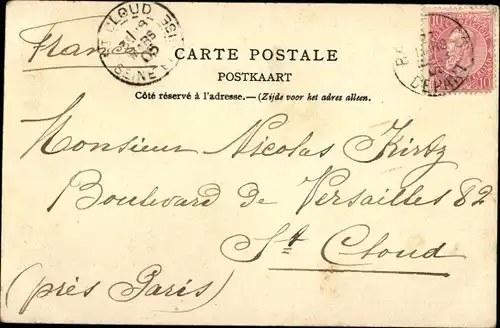 France
ST CLOUD
MARS
05
SEINE-ET-OISE
CARTE POSTALE
POSTKAART
Côté réservé à l'adresse.—(Zijde voor het adres alleen.
DÉPART
10
10
Monsieur Nicolas Kirtz
Boulevard de Versailles 82
St Cloud
(près Paris)